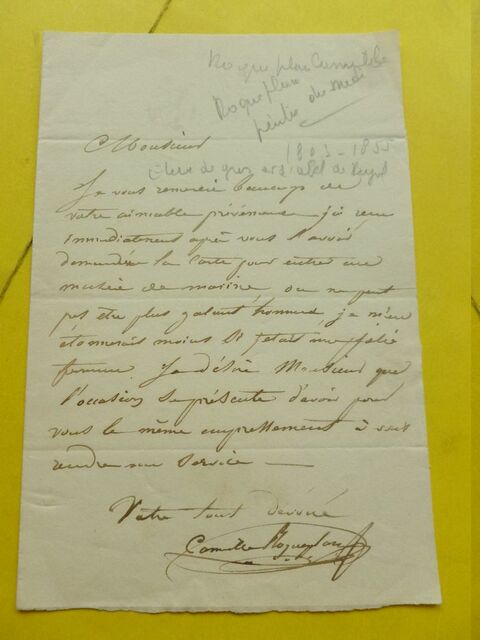 Roqueplan Camille
Roqueplan
peintre du midi
Monsieur
1803 - 1855
Eleve de gros et d'abel de Pujol
Je vous remercie beaucoup de
votre aimable prévenance j'ai recu
immédiatement après vous l'avoir
demandée la carte pour entrer au
musée de marine on ne peut
pas être plus galant homme, je m'en
étonnerais moins si j'étais une jolie
femme. Je désire Monsieur que
l'occasion se présente d'avoir pour
vous le même empressement à vous
rendre un service —
Votre tout dévoué
Camille Roqueplan